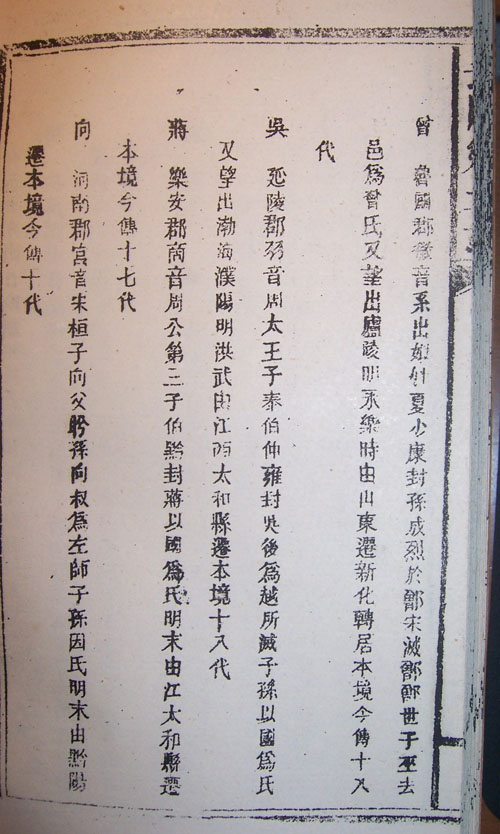 曾　魯國郡徵音系出姒姓夏少康封孫成烈於鄫宋滅鄫鄫世子巫去
邑為曾氏又望出廬陵明永樂時由山東遷新化轉居本境今傳十八
代
吳　延陵郡羽音周太王子泰伯仲雍封吳後為越所滅子孫以國為氏
又望出渤海濮陽明洪武由江西太和縣遷本境十八代
蔣　樂安郡商音周公第三子伯齡封蔣以國為氏明末由江太和縣遷
本境今傳十七代
向　河南郡宮音宋桓子向父肸孫向叔為左師子孫因氏明末由黔陽
遷本境今傳十代